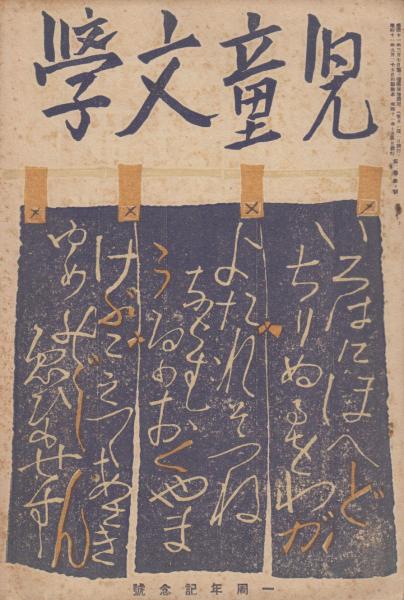 兒童文學
いろはにほへど
ちりぬるをわが
よたれそつね
ならむ
うゐのおくやま
けぶこえてあさき
ゆめみじん
ゑひもせす
一周年記念號